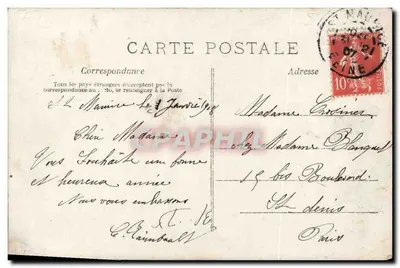 CARTE POSTALE
Correspondance
Tous les pays étrangers n'acceptent pas la
correspondance au dos, se renseigner à la Poste.
Adresse
St Maurice le 1 Janvier 1908
Chère Madame
Vous Souhaite une bonne
et heureuse année
Nous vous embrassons
Madame
chez Madame
15 bis Boulevard
St denis
Paris
ST MAURICE
07
SEINE
10